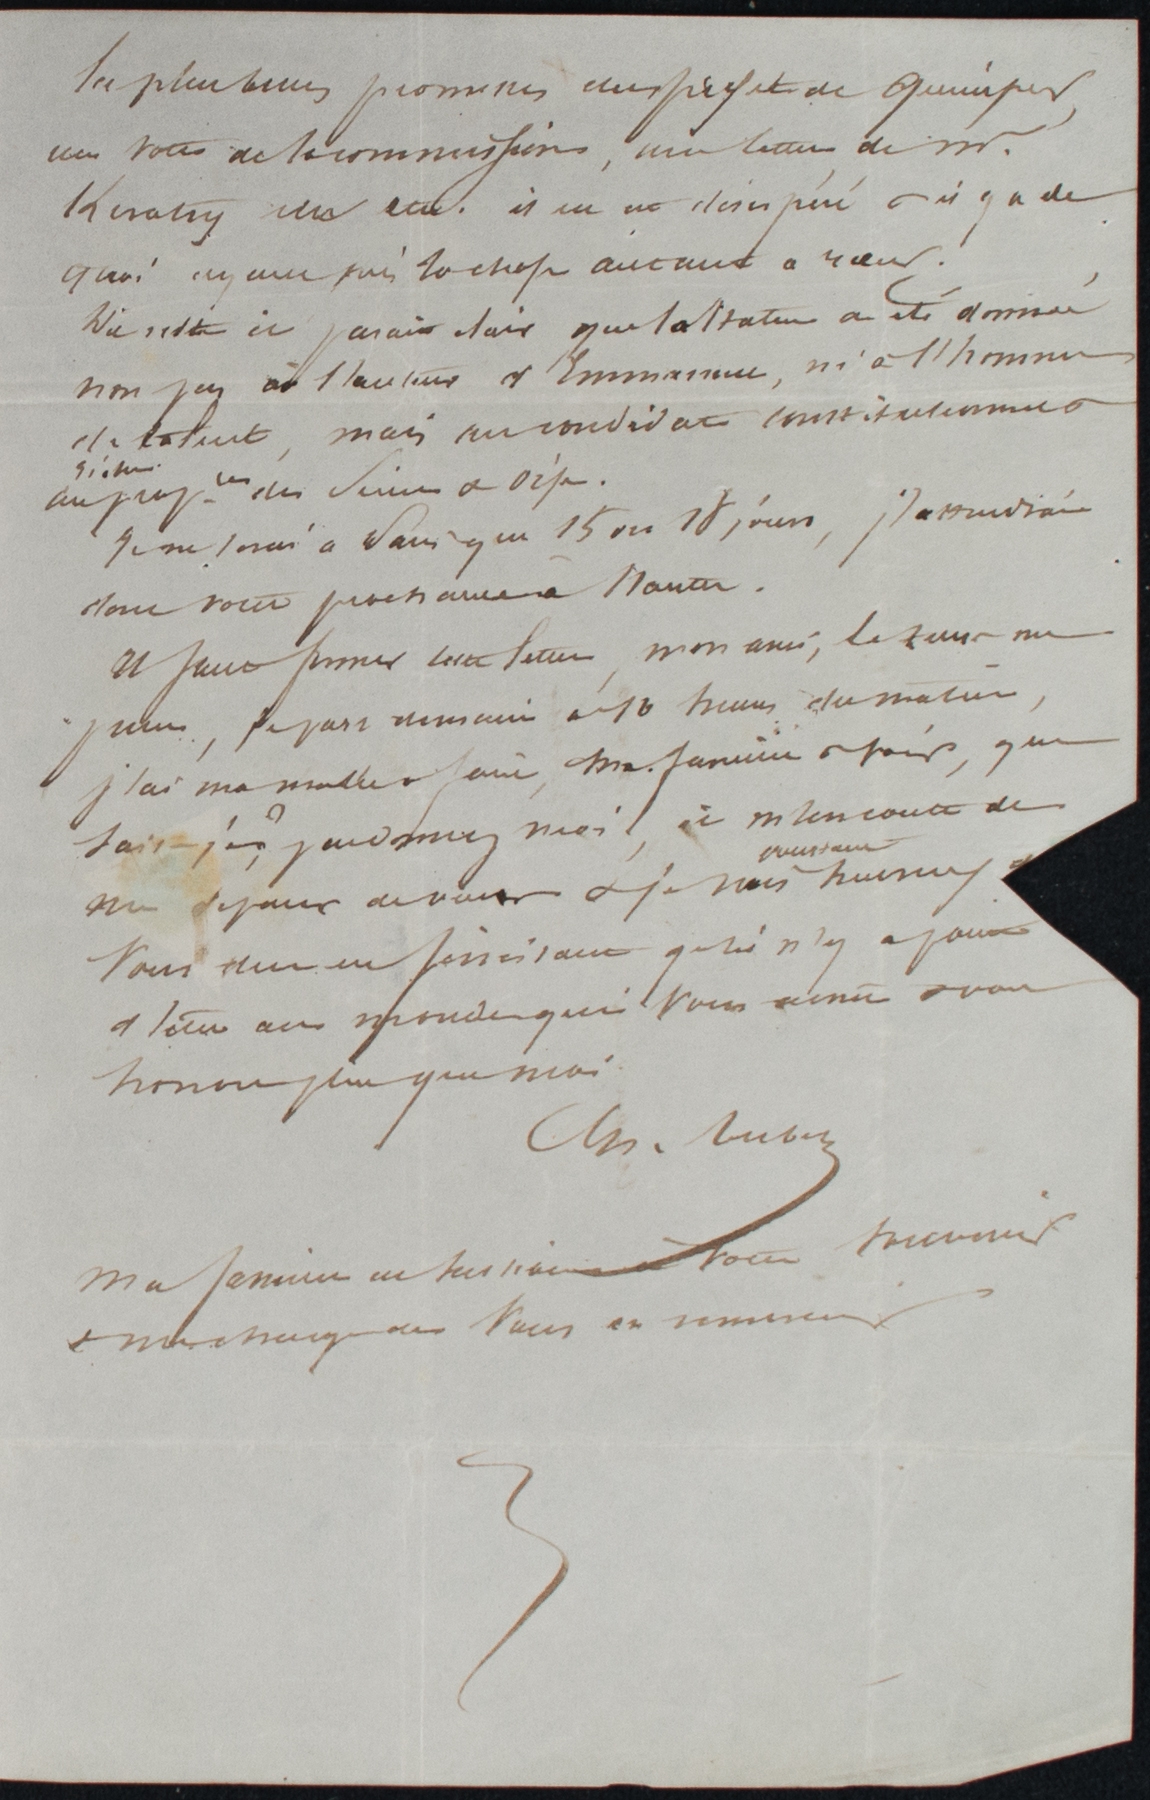 les plus belles promesses du préfet de Quimper,
un vote de la commission, une lettre de Mr.
Keratry etc etc. il en est désespéré & il y a de
quoi ayant pris la chose autant a cœur.
Du reste il parait clair que la statue a été donnée
non pas à l'auteur d'Emmanuel, ni à l'homme
de talent, mais au candidat constitutionnel &
au des Seine & Oise.
Je ne serai a Paris que 15 ou 18 jours, j'attendrai
donc votre prochaine à Nantes.
Il faut fermer cette lettre, mon ami, le temps me
presse, je pars demain à 10 heures du matin,
j'ai ma malle a faire, ma famille a voir, que
sais-je ? pardonnez moi, il m'en coute de
me séparer de vous & je suis heureux
Vous dire en finissant qu'il n'y a point
d'être au monde qui vous aime & vous
honore plus que moi.
Ch.
Ma famille est sensible à votre souvenir
& me charge de vous en remercier